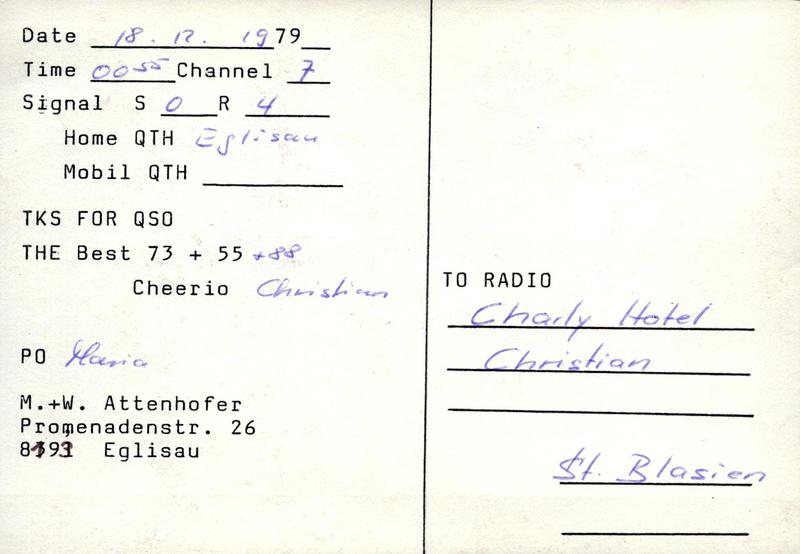 Date 18. 12. 1979
Time 0055 Channel 7
Signal S 0 R 4
Home QTH Eglisau
Mobil QTH
TKS FOR QSO
THE Best 73 + 55 +88
Cheerio Christian
PO Maria
M.+W. Attenhofer
Promenadenstr. 26
Eglisau
TO RADIO
Charly Hotel
Christian
St. Blasien